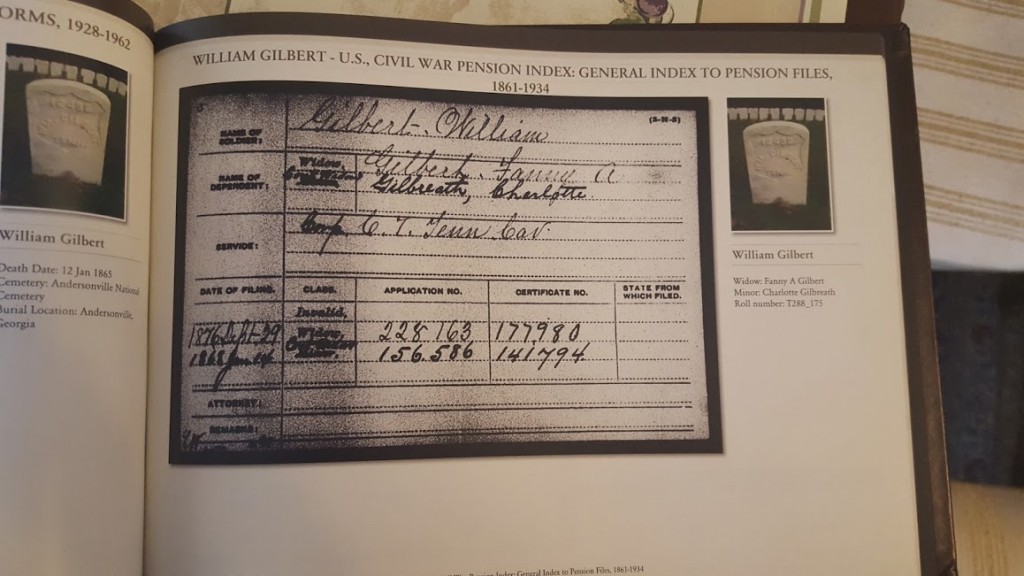 ORMS, 1928-1962
William Gilbert
Death Date: 12 Jan 1865
Cemetery: Andersonville National
Cemetery
Burial Location: Andersonville,
Georgia
WILLIAM GILBERT - U.S., CIVIL WAR PENSION INDEX: GENERAL INDEX TO PENSION FILES,
1861-1934
NAME OF
SOLDIER:
Gilbert. William
NAME OF
DEPENDENT:
Widow, Gilbert. Fanny A
Gilbreath, Charlotte
SERVICE:
Corp C. 7. Tenn Cav.
DATE OF FILING. CLASS. APPLICATION NO. CERTIFICATE NO. STATE FROM
WHICH FILED.
Invalid,
1876 Sept-29 Widow, 228.163 177980
1868 Jan. Minor, 156.586 141794
ATTORNEY:
REMARKS:
William Gilbert
Widow: Fanny A Gilbert
Minor: Charlotte Gilbreath
Roll number: T288_175
Index: General Index to Pension Files, 1861-1934